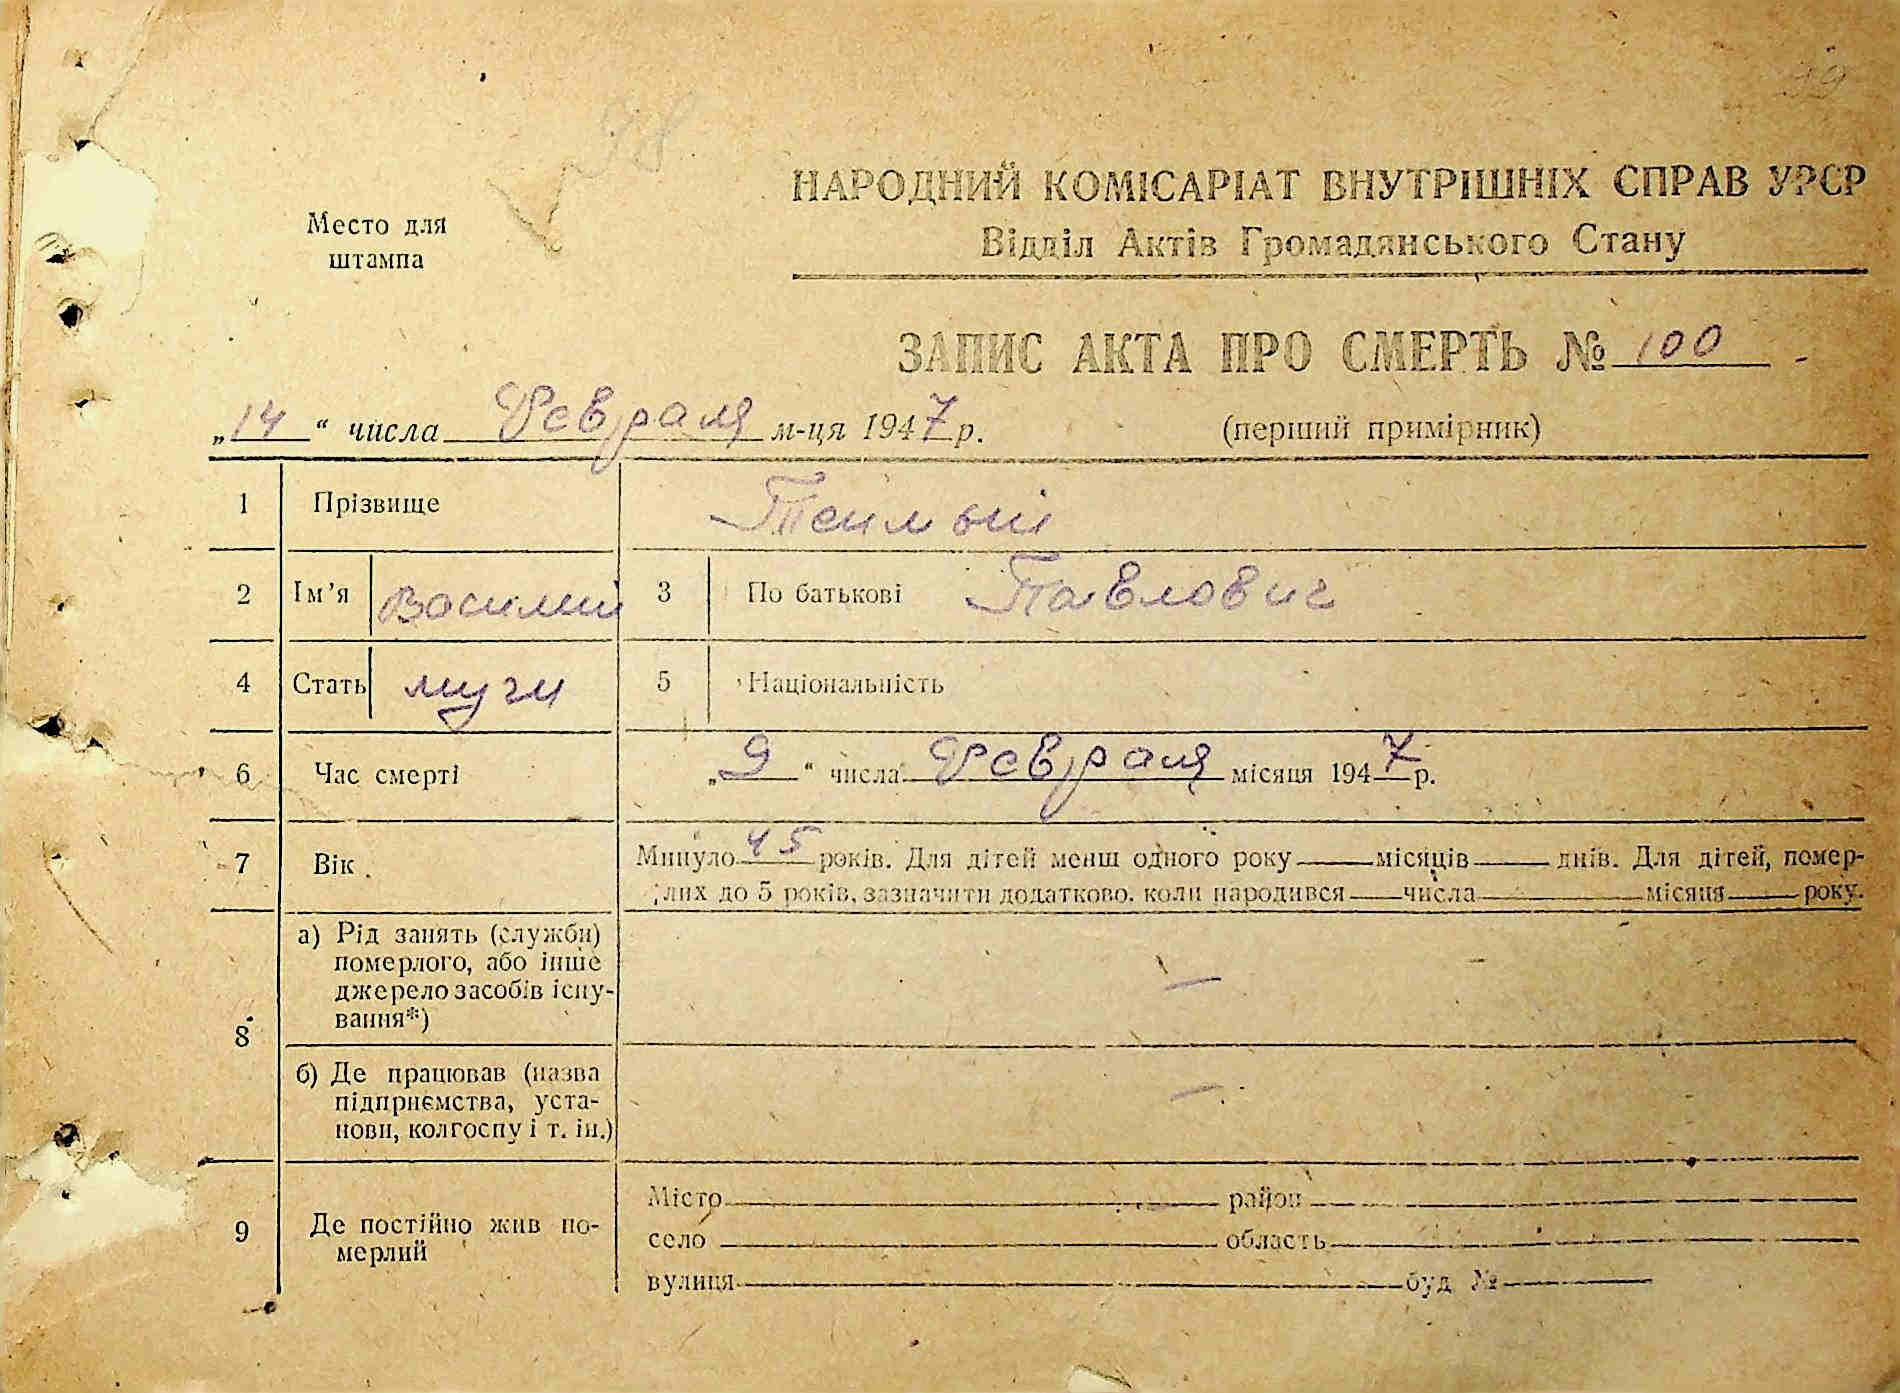 99
98
Место для
штампа
НАРОДНИЙ КОМІСАРІАТ ВНУТРІШНІХ СПРАВ УРСР
Відділ Актів Громадянського Стану
ЗАПИС АКТА ПРО СМЕРТЬ № 100
„14“ числа Февраля м-ця 1947 р.
(перший примірник)
1 Прізвище
2 Ім’я Василий 3 По батькові Павлович
4 Стать 5 Національність
6 Час смерті „9“ числа Февраля місяця 1947 р.
7 Вік. Минуло 45 років. Для дітей менш одного року місяців днів. Для дітей, помер-
лих до 5 років, зазначити додатково, коли народився числа місяця року.
8 а) Рід занять (служби)
померлого, або інше
джерело засобів існу-
вання*) —
б) Де працював (назва
підприємства, уста-
нови, колгоспу і т. ін.) —
9 Де постійно жив по-
мерлий
Місто район
село область
вулиця буд №